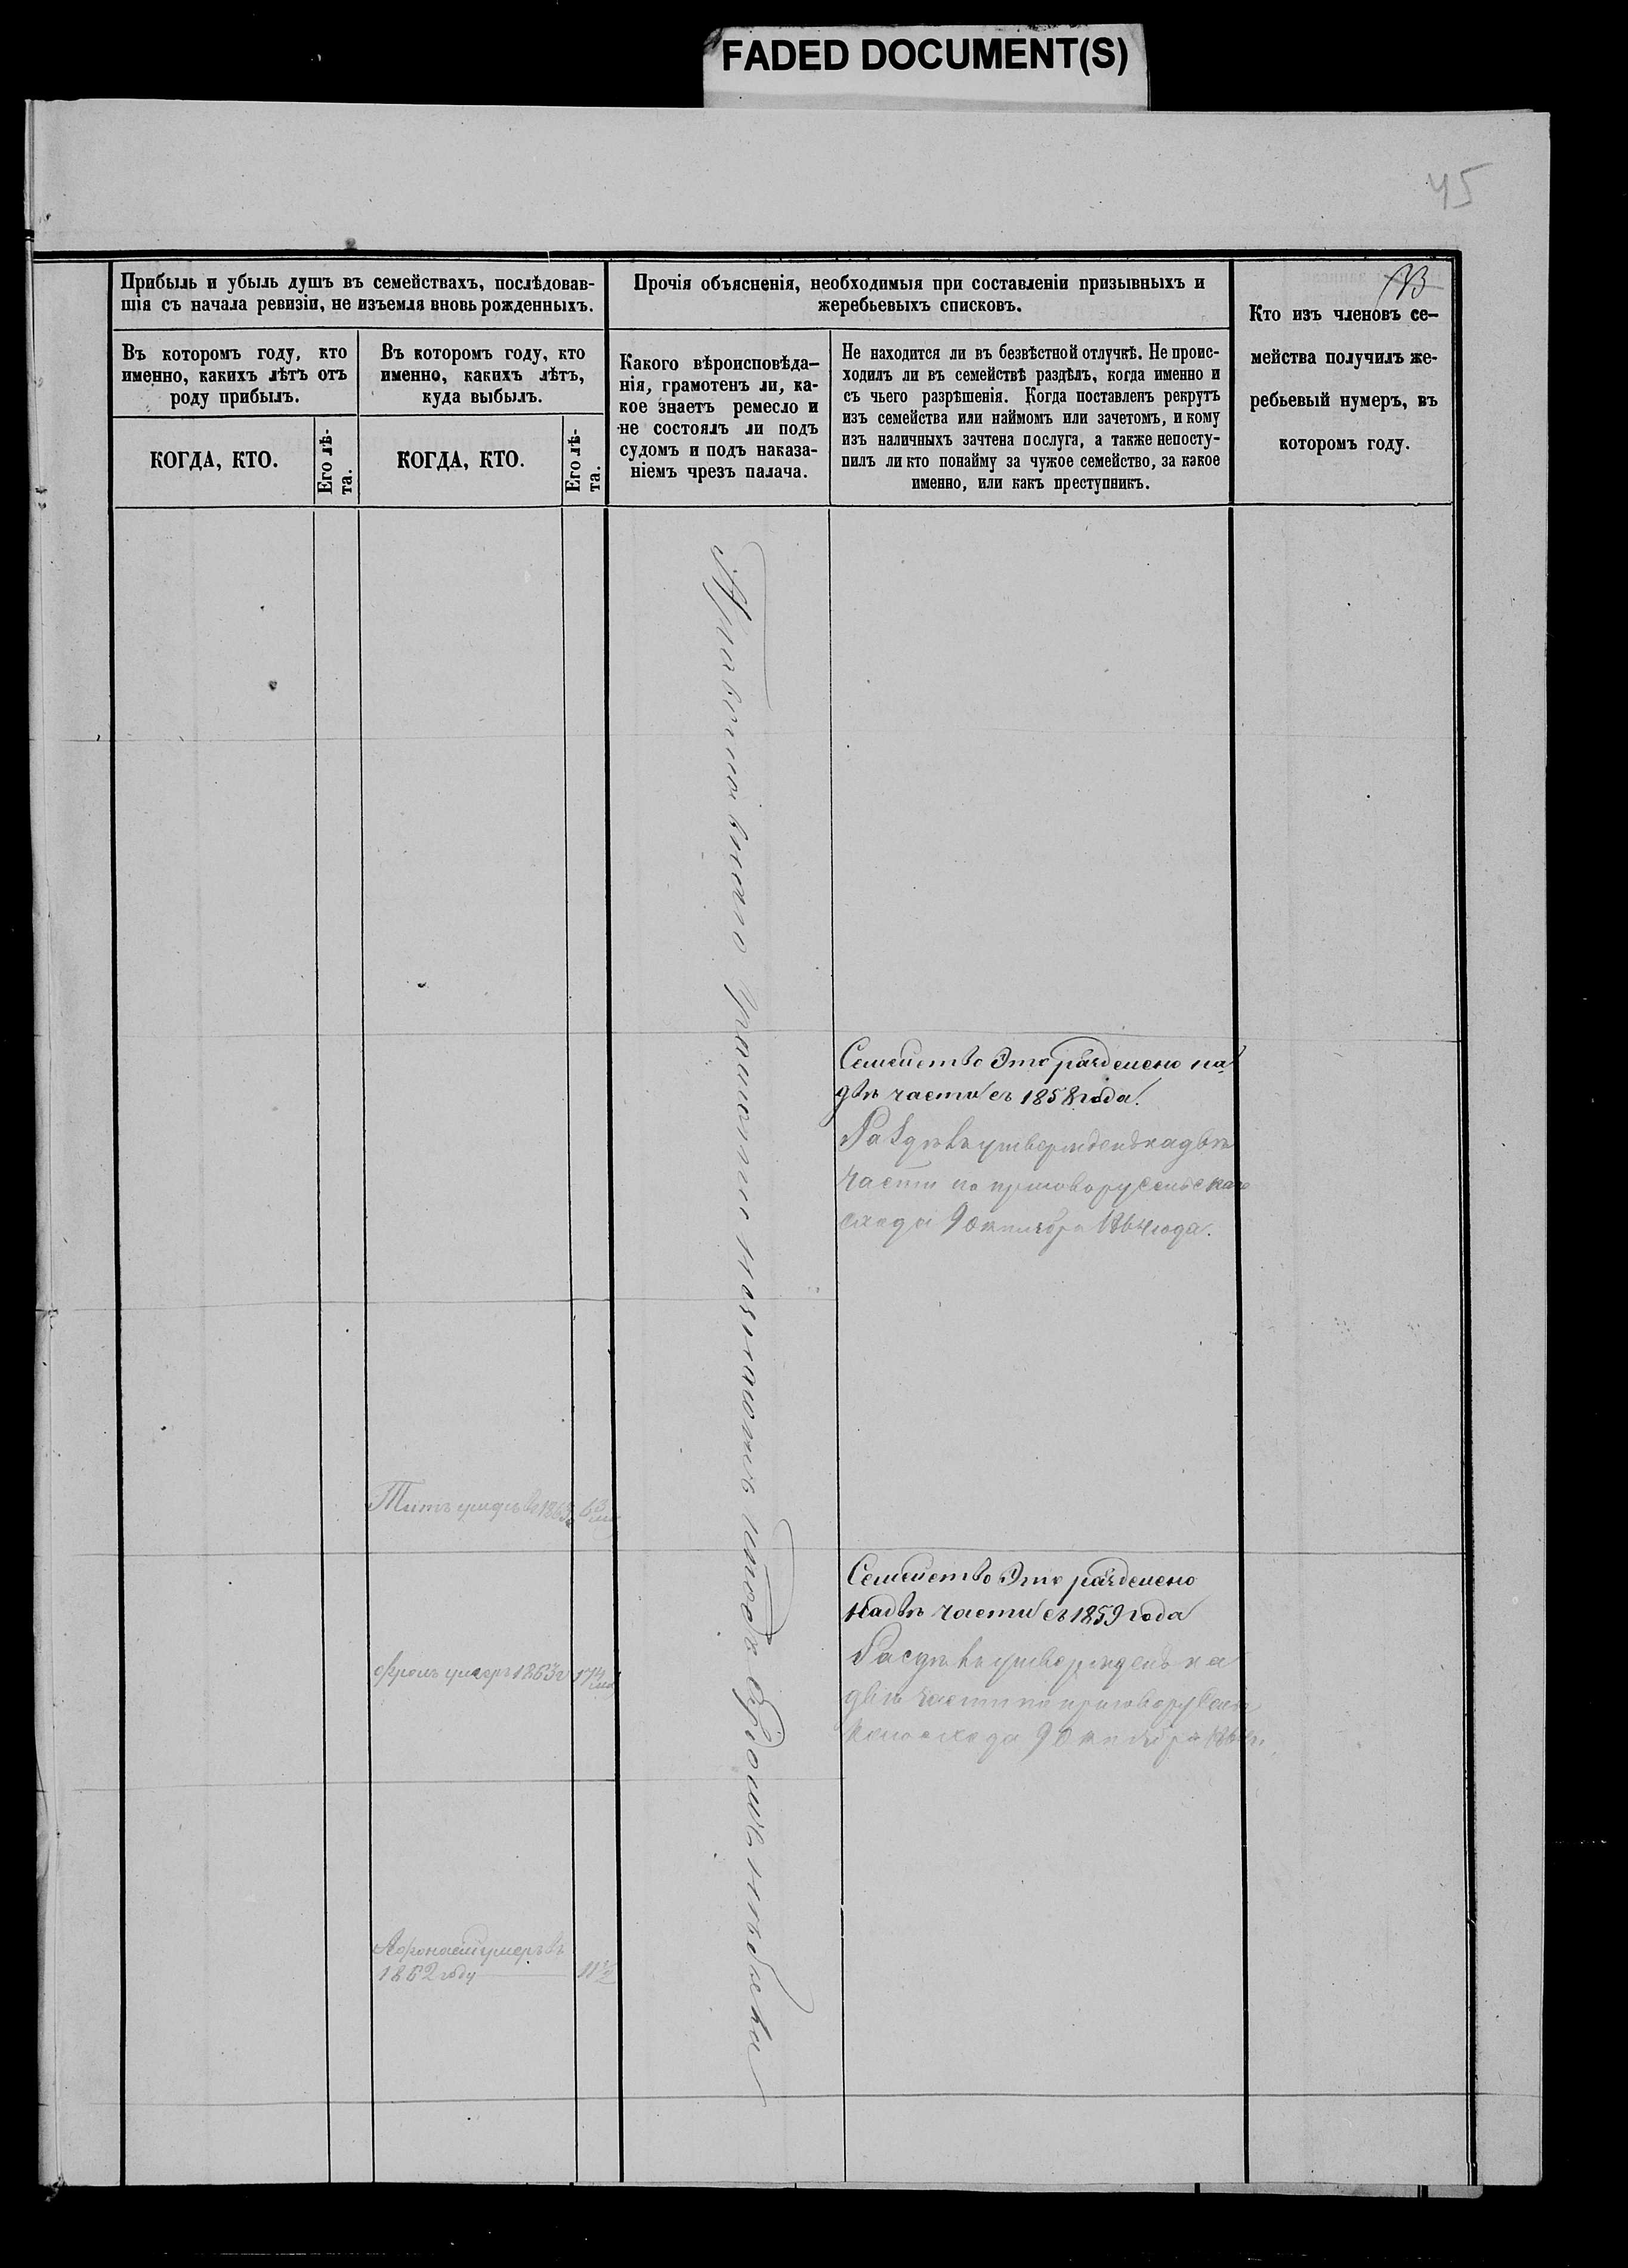 FADED DOCUMENT(S)
45
Прибыль и убыль душъ въ семействахъ, послѣдовав-
шія съ начала ревизіи, не изъемля вновь рожденныхъ.
Въ которомъ году, кто
именно, какихъ лѣтъ отъ
роду прибылъ.
КОГДА, КТО.
Его лѣ-
та.
Въ которомъ году, кто
именно, какихъ лѣтъ,
куда выбылъ.
КОГДА, КТО.
Его лѣ-
та.
Прочія объясненія, необходимыя при составленіи призывныхъ и
жеребьевыхъ списковъ.
Какого вѣроисповѣда-
нія, грамотенъ ли, ка-
кое знаетъ ремесло и
не состоялъ ли подъ
судомъ и подъ наказа-
ніемъ чрезъ палача.
Не находится ли въ безвѣстной отлучкѣ. Не проис-
ходилъ ли въ семействѣ раздѣлъ, когда именно и
съ чьего разрѣшенія. Когда поставленъ рекрутъ
изъ семейства или наймомъ или зачетомъ, и кому
изъ наличныхъ зачтена послуга, а также непосту-
пилъ ли кто понайму за чужое семейство, за какое
именно, или какъ преступникъ.
Кто изъ членовъ се-
мейства получилъ же-
ребьевый нумеръ, въ
которомъ году.
Семейство Это разделено на
двѣ части съ 1858 года.
Раздѣлъ утвержденъ на двѣ
части по приговору сельскаго
схода 9 октября 1864 года.
Титъ умеръ въ 1863 63
Семейство Это разделено
на двѣ части съ 1859 года
Расдѣлъ утвержденъ на
двѣ части по приговору Сель
скаго схода 9 Октября 1864 г.
умеръ 1863 г 17
Афонасій умеръ въ
1862 году 11